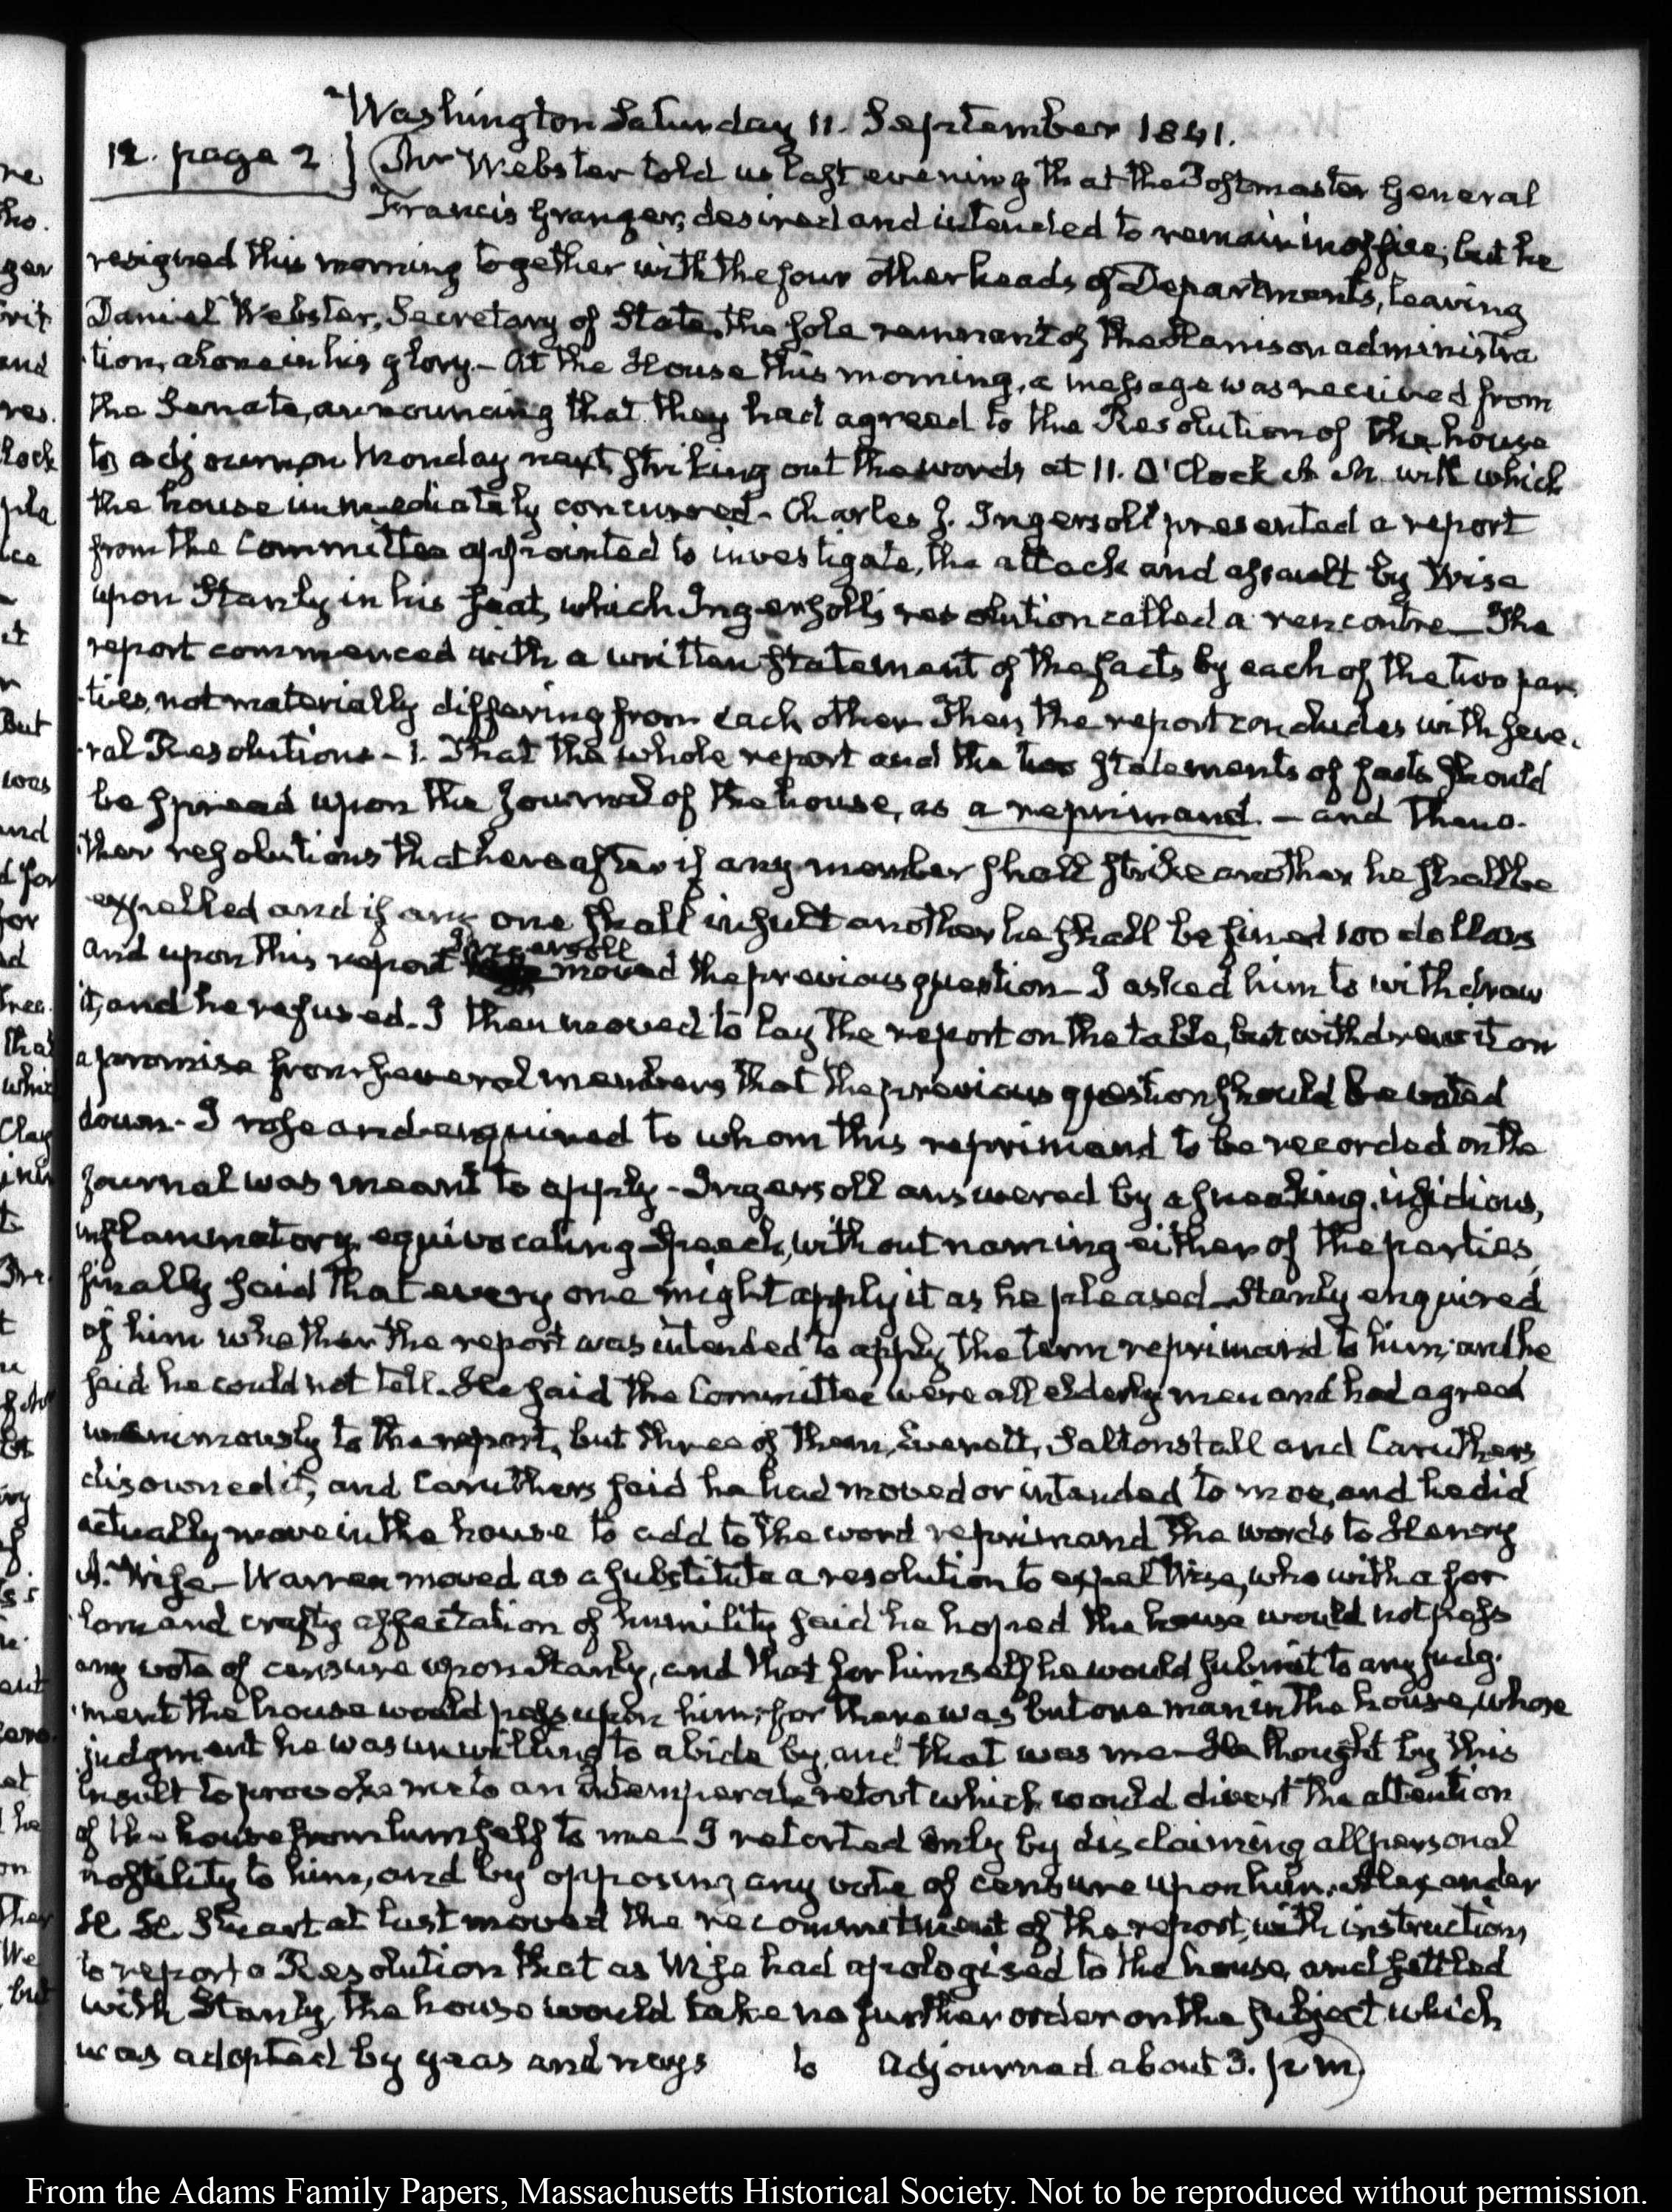 Washington Saturday 11. September 1841.
12. page 2. } Mr Webster told us last evening that the Postmaster General
Francis Granger, desired and intended to remain in office; but he
resigned this morning together with the four other heads of Departments, leaving
Daniel Webster, Secretary of State, the sole remnant of the Harrison administra
tion, alone in his glory.– At the House this morning, a message was received from
the Senate, announcing that they had agreed to the Resolution of the house
to adjourn on Monday next, striking out the words at 11. O'Clock A. M. with which
the house immediately concurred– Charles J. Ingersoll presented a report
from the Committee appointed to investigate, the attack and assault by Wise
upon Stanly in his seat, which Ingersoll's resolution called a rencontre– The
report commenced with a written statement of the facts by each of the two par
-ties, not materially differing from each other. Then the report concludes with seve-
-ral Resolutions– 1. That the whole report and the two statements of facts should
be spread upon the Journal of the house, as a reprimand.– and then o-
-ther resolutions that hereafter if any member shall strike another he shall be
expelled and if any one shall insult another he shall be fined 100 dollars
and upon this report Ingersoll moved the previous question– I asked him to withdraw
it, and he refused. I then moved to lay the report on the table, but withdrew it on
a promise from several members that the previous question should be voted
down– I rose and enquired to whom this reprimand to be recorded on the
Journal was meant to apply– Ingersoll answered by a sneaking, insidious,
inflammatory, equivocating speech, without naming either of the parties,
finally said that every one might apply it as he pleased– Stanly enquired
of him whether the report was intended to apply the term reprimand to him; and he
said he could not tell. He said the Committee were all elderly men and had agreed
unanimously to the report, but three of them, Everett, Saltonstall and Caruthers
disowned it; and Caruthers said he had moved or intended to moe, and he did
actually move in the house to add to the word reprimand the words to Henry
A. Wise– Warren moved as a substitute a resolution to expel Wise, who with a for
lorn and crafty affectation of humility said he hoped the house would not pass
any vote of censure upon Stanly, and that for himself he would submit to any judg-
-ment the house would pass upon him; for there was but one man in the house, whose
judgment he was unwilling to abide by, and that was me– He thought by this
insult to provoke me to an intemperate retort which would divert the attention
of the house from himself to me– I retorted only by disclaiming all personal
hostility to him, and by opposing any vote of censure upon him. Alexander
H. H. Stuart at last moved the recommitment of the report, with instructions
to report a Resolution that as Wise had apologised to the house, and settled
with Stanly, the house would take no further order on the subject which
was adopted by yeas and nays to Adjourned about 3. p m)
From the Adams Family Papers, Massachusetts Historical Society. Not to be reproduced without permission.